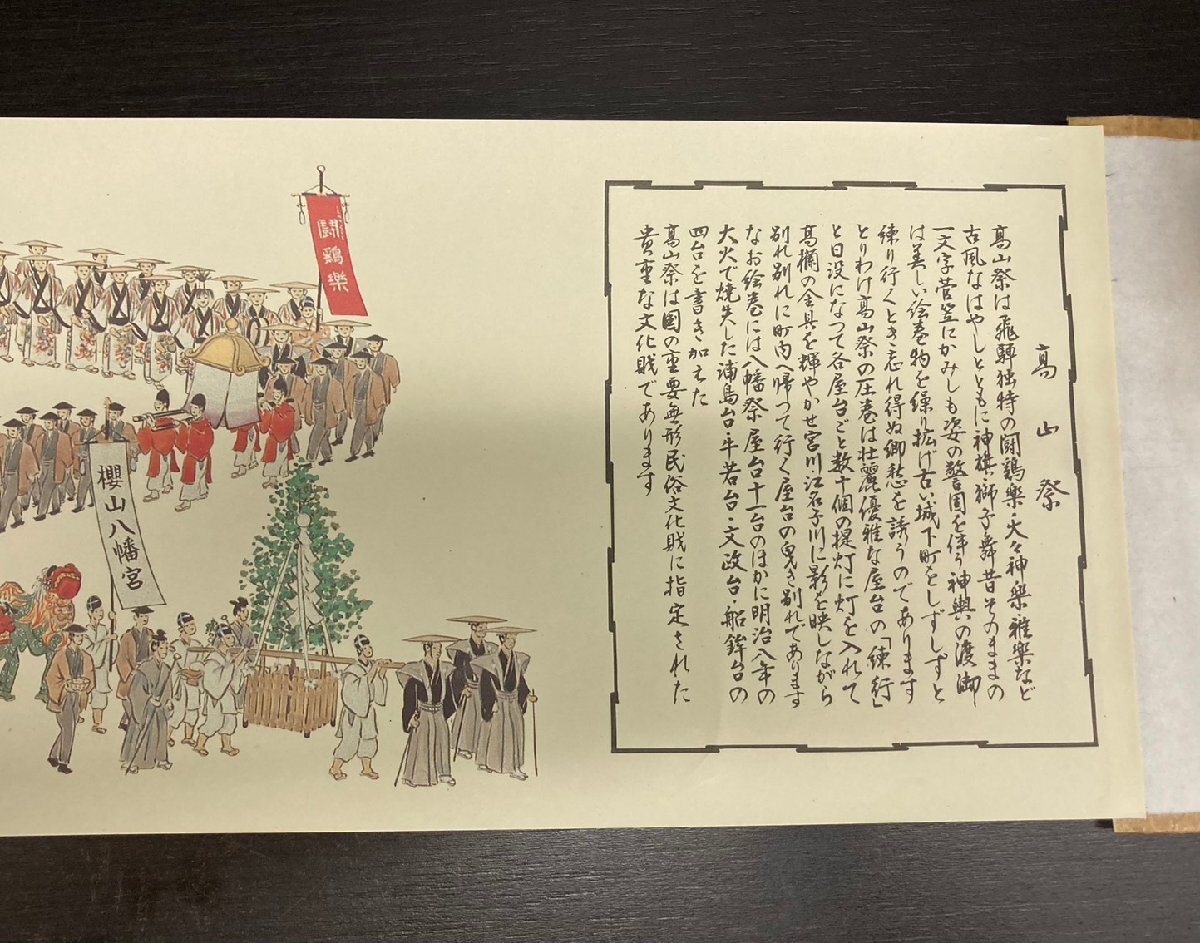 高山祭
高山祭は飛騨独特の闘鶏樂・大々神樂・雅樂など
古風なはやしとともに神旗・獅子舞昔そのままの
一文字菅笠にかみしも姿の警固を伴う神輿の渡御
は美しい絵巻物を繰り拡げ古い城下町をしずしずと
練り行くとき忘れ得ぬ郷愁を誘うのであります
とりわけ高山祭の圧巻は壮麗優雅な屋台の「練行」
と日没になって各屋台ごと数十個の提灯に灯を入れて
高欄の金具を輝やかせ宮川・江名子川に影を映しながら
別れ別れに町内へ帰って行く屋台の曳き別れであります
なお絵巻には八幡祭屋台十一台のほかに明治八年の
大火で焼失した浦島台・牛若台・文政台・船鉾台の
四台を書き加えた
高山祭は国の重要無形民俗文化財に指定された
貴重な文化財であります
闘鶏樂
櫻山八幡宮